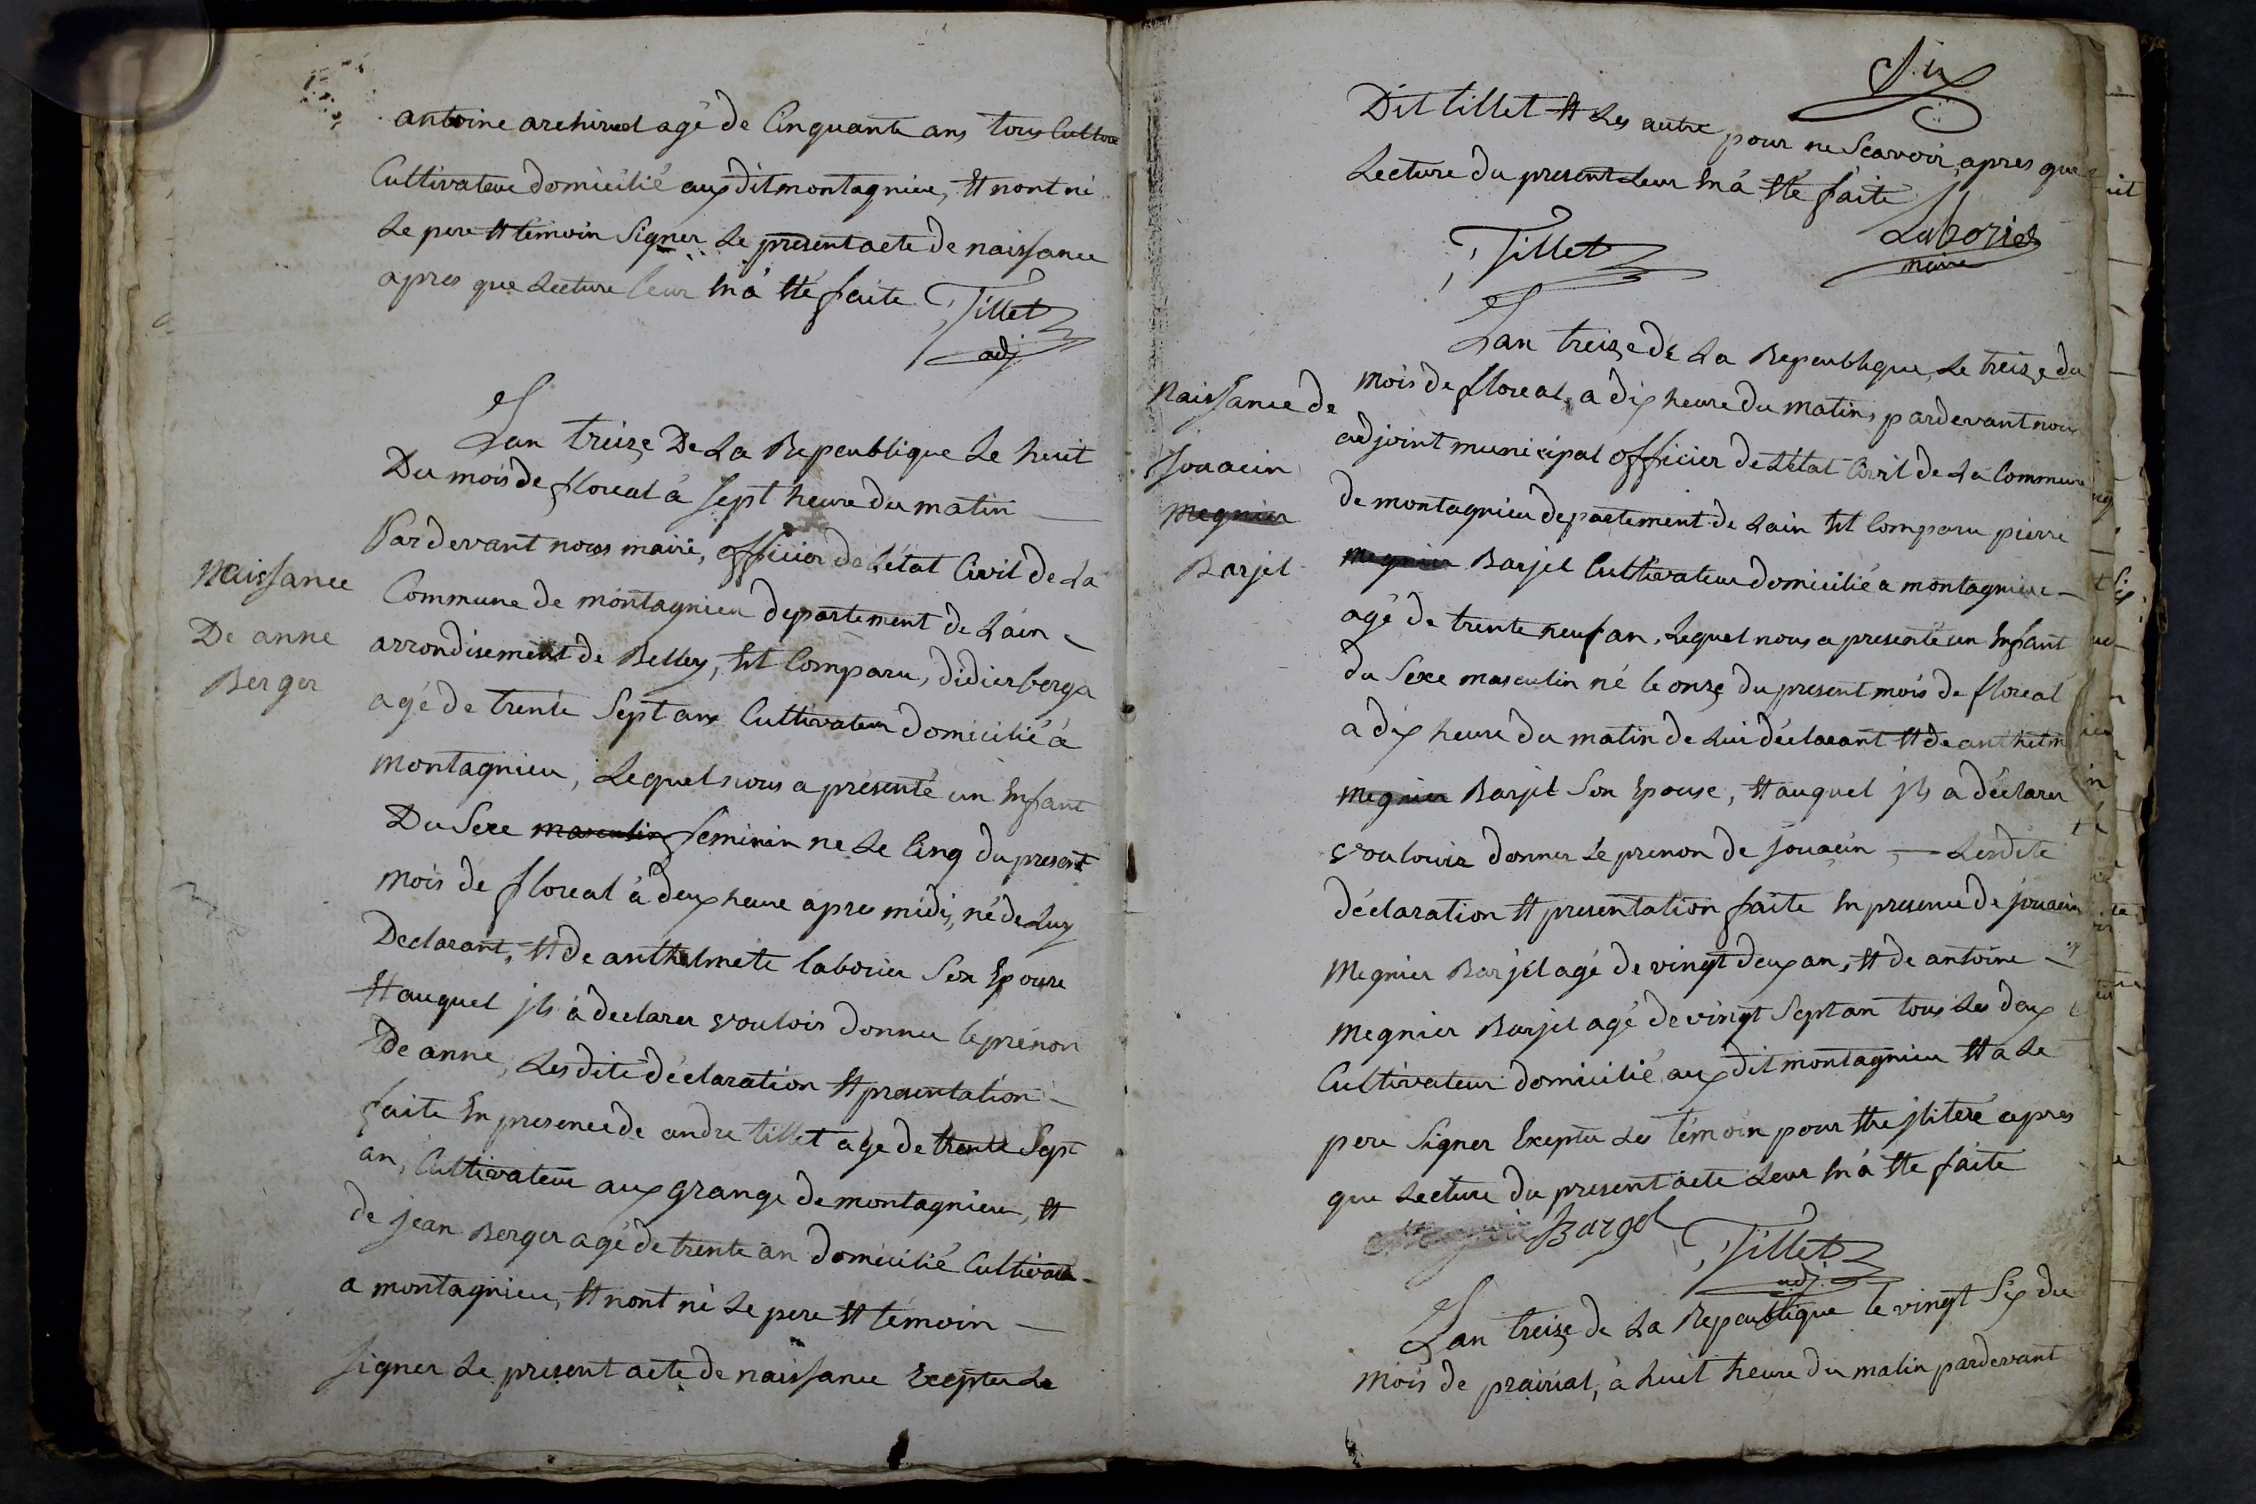 antoine archired agé de Cinquante ans tous Cultive
Cultivateur domicilié aux dit montagnieu, Et nont ni
Le pere Et témoin Signer Le present acte de naissance
apres que Lecture leur En á Eté faite Tillet
adj
Lan treize De La Republique Le huit
Du mois de floreal á Sept heure du matin
Pardevant nous maire, officier de L'état Civil de La
Commune de montagnieu departement de L'ain
arrondisement de Belley, Est Comparu, didier berger
agé de trente Sept ans Cultivateur domicilié á
montagnieu, Lequel nous a présenté un Enfant
Du Sexe masculin feminin ne Le Cinq du present
mois de floreal á deux heure apres midi, né de Luy
Declarant, Et de anthelmete laborier Son Epouse
Et auquel jls á declarer vouloir donner le prénon
De anne, Les dite déclaration Et presentation
faite En presence de andre tillet agé de trente Sept
an, Cultivateur aux grange de montagnieu, Et
de jean Berger agé de trente an domicilié Cultivate
a montagnieu, Et nont ni Le pere Et témoin
signer Le present acte de naissance Exeptu Le
Naissance
De anne
Berger
Six
Dit tillet Et Les autre pour ne Scavoir, apres que
Lecture du present Leur En á Eté faite
Tillet
Laborier
maire
Lan treize de La Republique, Le treize du
mois de floreal, a dix heure du matin, pardevant nous
adjoint municipal officier de L'état Civil de La Commune
de montagnieu departement de Lain Est Comparu pierre
megnier Barjet Cultivateur domicilié a montagnieu
agé de trente neuf an, Lequel nous a presenté un Enfant
du Sexe masculin né le onze du present mois de floreal
a dix heure du matin de Lui déclarant Et de anthelm
megnier Barjet Son Epouse, Et auquel jls a déclarer
vouloire donner Le prenon de jouacin, Lesdite
déclaration Et presentation faite En presence de jouacin
megnier Barjet agé de vingt deux an, Et de antoine
megnier Barjet agé de vingt Sept an tous Les deux
Cultivateur domicilié aux dit montagnieu Et a Le
pere Signer Exeptu Les témoin pour Etre jliteré apres
que Lecture du present acte Leur En á Eté faite
Bargel Tillet
adj.
Lan treize de La Republique le vingt Six du
mois de prairial, á huit heure du matin pardevant
Naissance de
Jouacin
megnier
Barjet